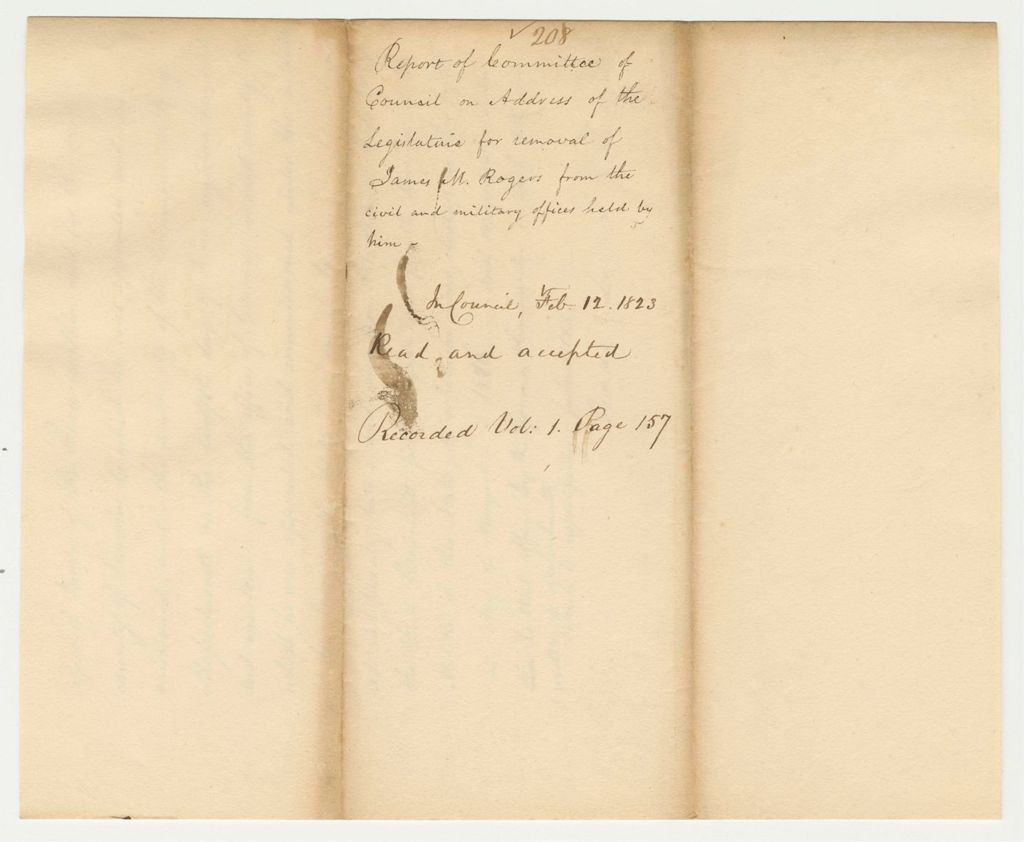 ✓ 208
Report of Committee of
Council on Address of the
Legislature for removal of
James M. Rogers from the
civil and military offices held by
him
In Council, Feb. 12. 1823
Read and accepted
Recorded Vol: 1. Page 157